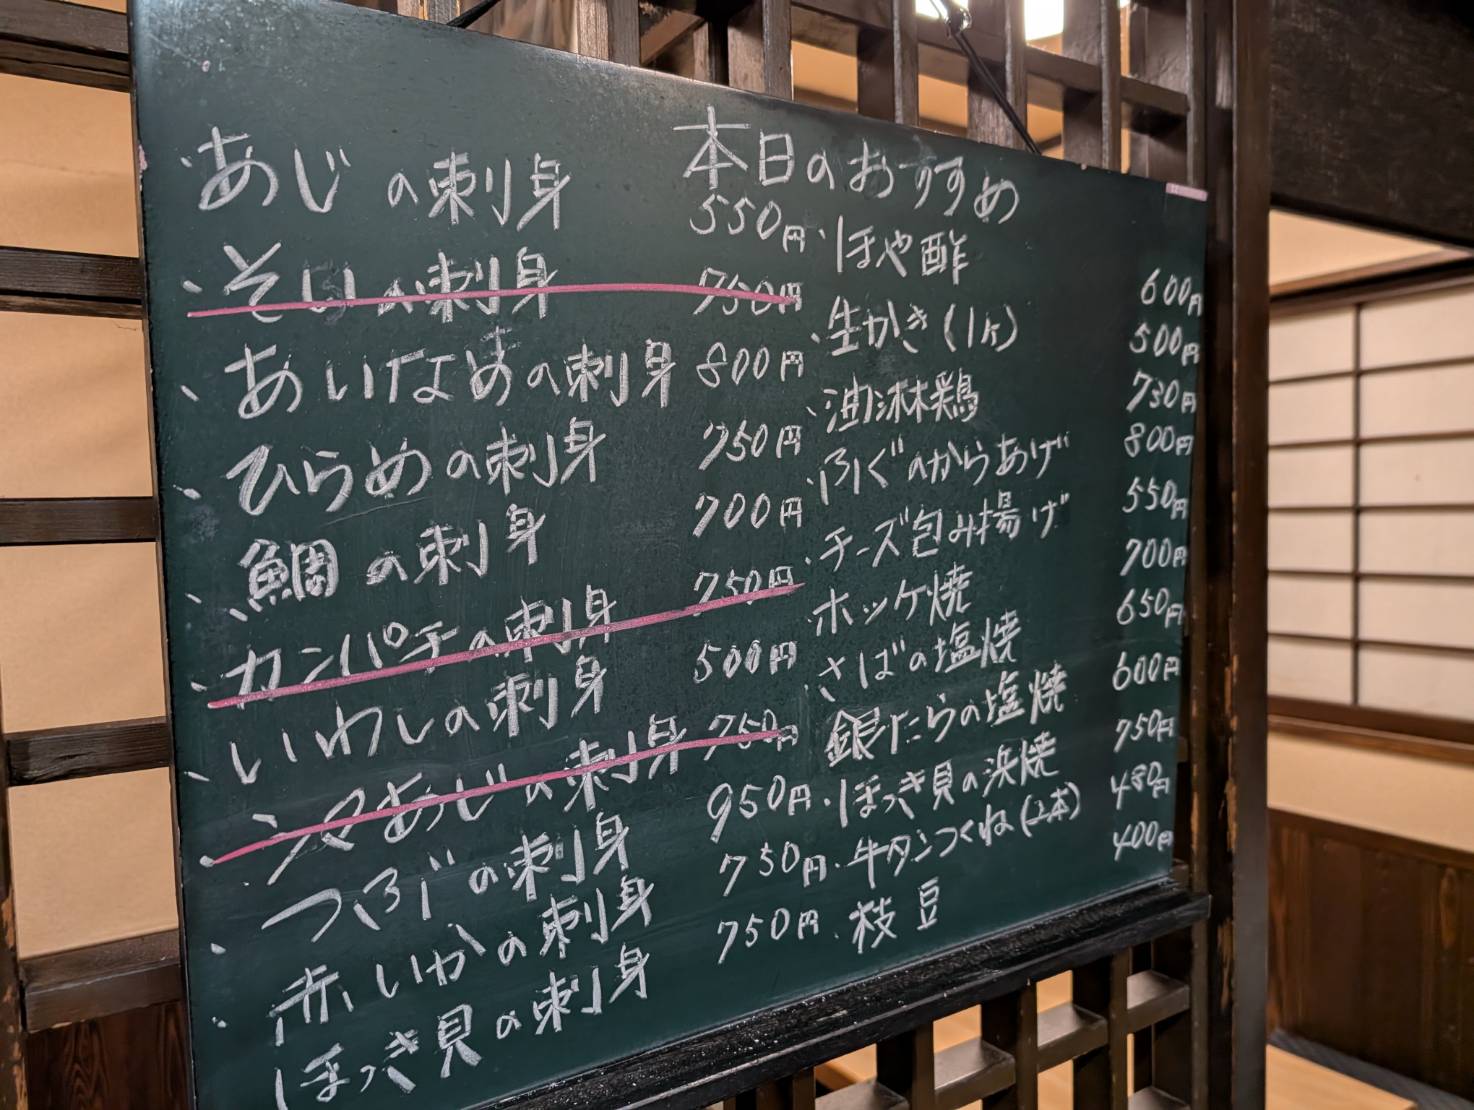 本日のおすすめ
・あじの刺身 550円
・そいの刺身 750円
・あいなめの刺身 800円
・ひらめの刺身 750円
・鯛の刺身 700円
・カンパチの刺身 750円
・いわしの刺身 500円
・シマあじの刺身 750円
・つぶの刺身 950円
・赤いかの刺身 750円
・ほっき貝の刺身 750円
・ほや酢 600円
・生かき(1ヶ) 500円
・油淋鶏 730円
・ふぐのからあげ 800円
・チーズ包み揚げ 550円
・ホッケ焼 700円
・さばの塩焼 650円
銀たらの塩焼 600円
・ほっき貝の浜焼 750円
・牛タンつくね(2本) 480円
・枝豆 400円